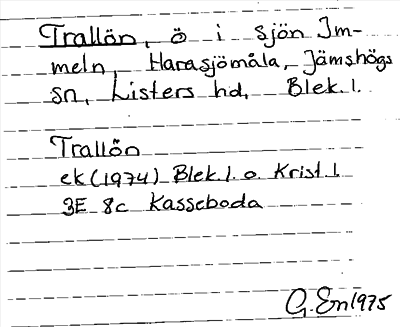 Trallön, ö i sjön Im-
meln, Harasjömåla, Jämshögs
sn, Listers hd, Blek. l.
Trallön
ek (1974) Blek. l. o. Krist. l.
3E 8c Kasseboda
G. En 1975